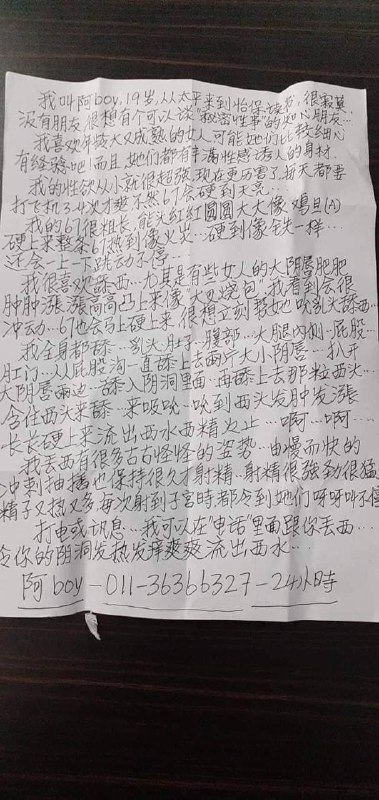 我叫阿boy,19岁,从太平来到怡保读书,很寂莫
没有朋友,很想有个可以谈"秘密性事"的知心朋友...
我喜欢年龄大又成熟的女人可能她们比较细心
有经验吧!而且她们都有丰满性感诱人的身材.
我的性欲从小就很超强现在更厉害了每天都要
打飞机3.4次才爽不然67会硬到天亮...
我的67很粗长,龟头红红圆圆大大像鸡旦(A)
硬上来整条67热到像火炭...硬到像铁一样...
还会一上一下跳动不停...
我很喜欢舔西...尤其是有些女人的大阴唇肥肥
肿肿涨涨高高凸上来像"大叉烧包"我看到会很
冲动...67也会马上硬上来很想立刻帮她吹乳头舔西...
我全身都舔...乳头肚子...腹部...大腿内侧...屁股...
肛门...从屁股沟一直舔上去两片大小阴唇...扒开
大阴唇两边...舔入阴洞里面...再舔上去那粒西头...
含住西头来舔...来吸吮...吮到西头发肿发涨
长长硬上来流出西水西精为止...啊...啊...
我丢西有很多古古怪怪的姿势...由慢而快的
冲刺抽插也保持很久才射精...射精很强劲很猛
精子又热又多每次射到子宫時都令到她们呀呀叫不停
打电或讯息...我可以在"电话"里面跟你丢西...
令你的阴洞发热发痒爽爽流出西水...
阿boy-011-36366327-24小時